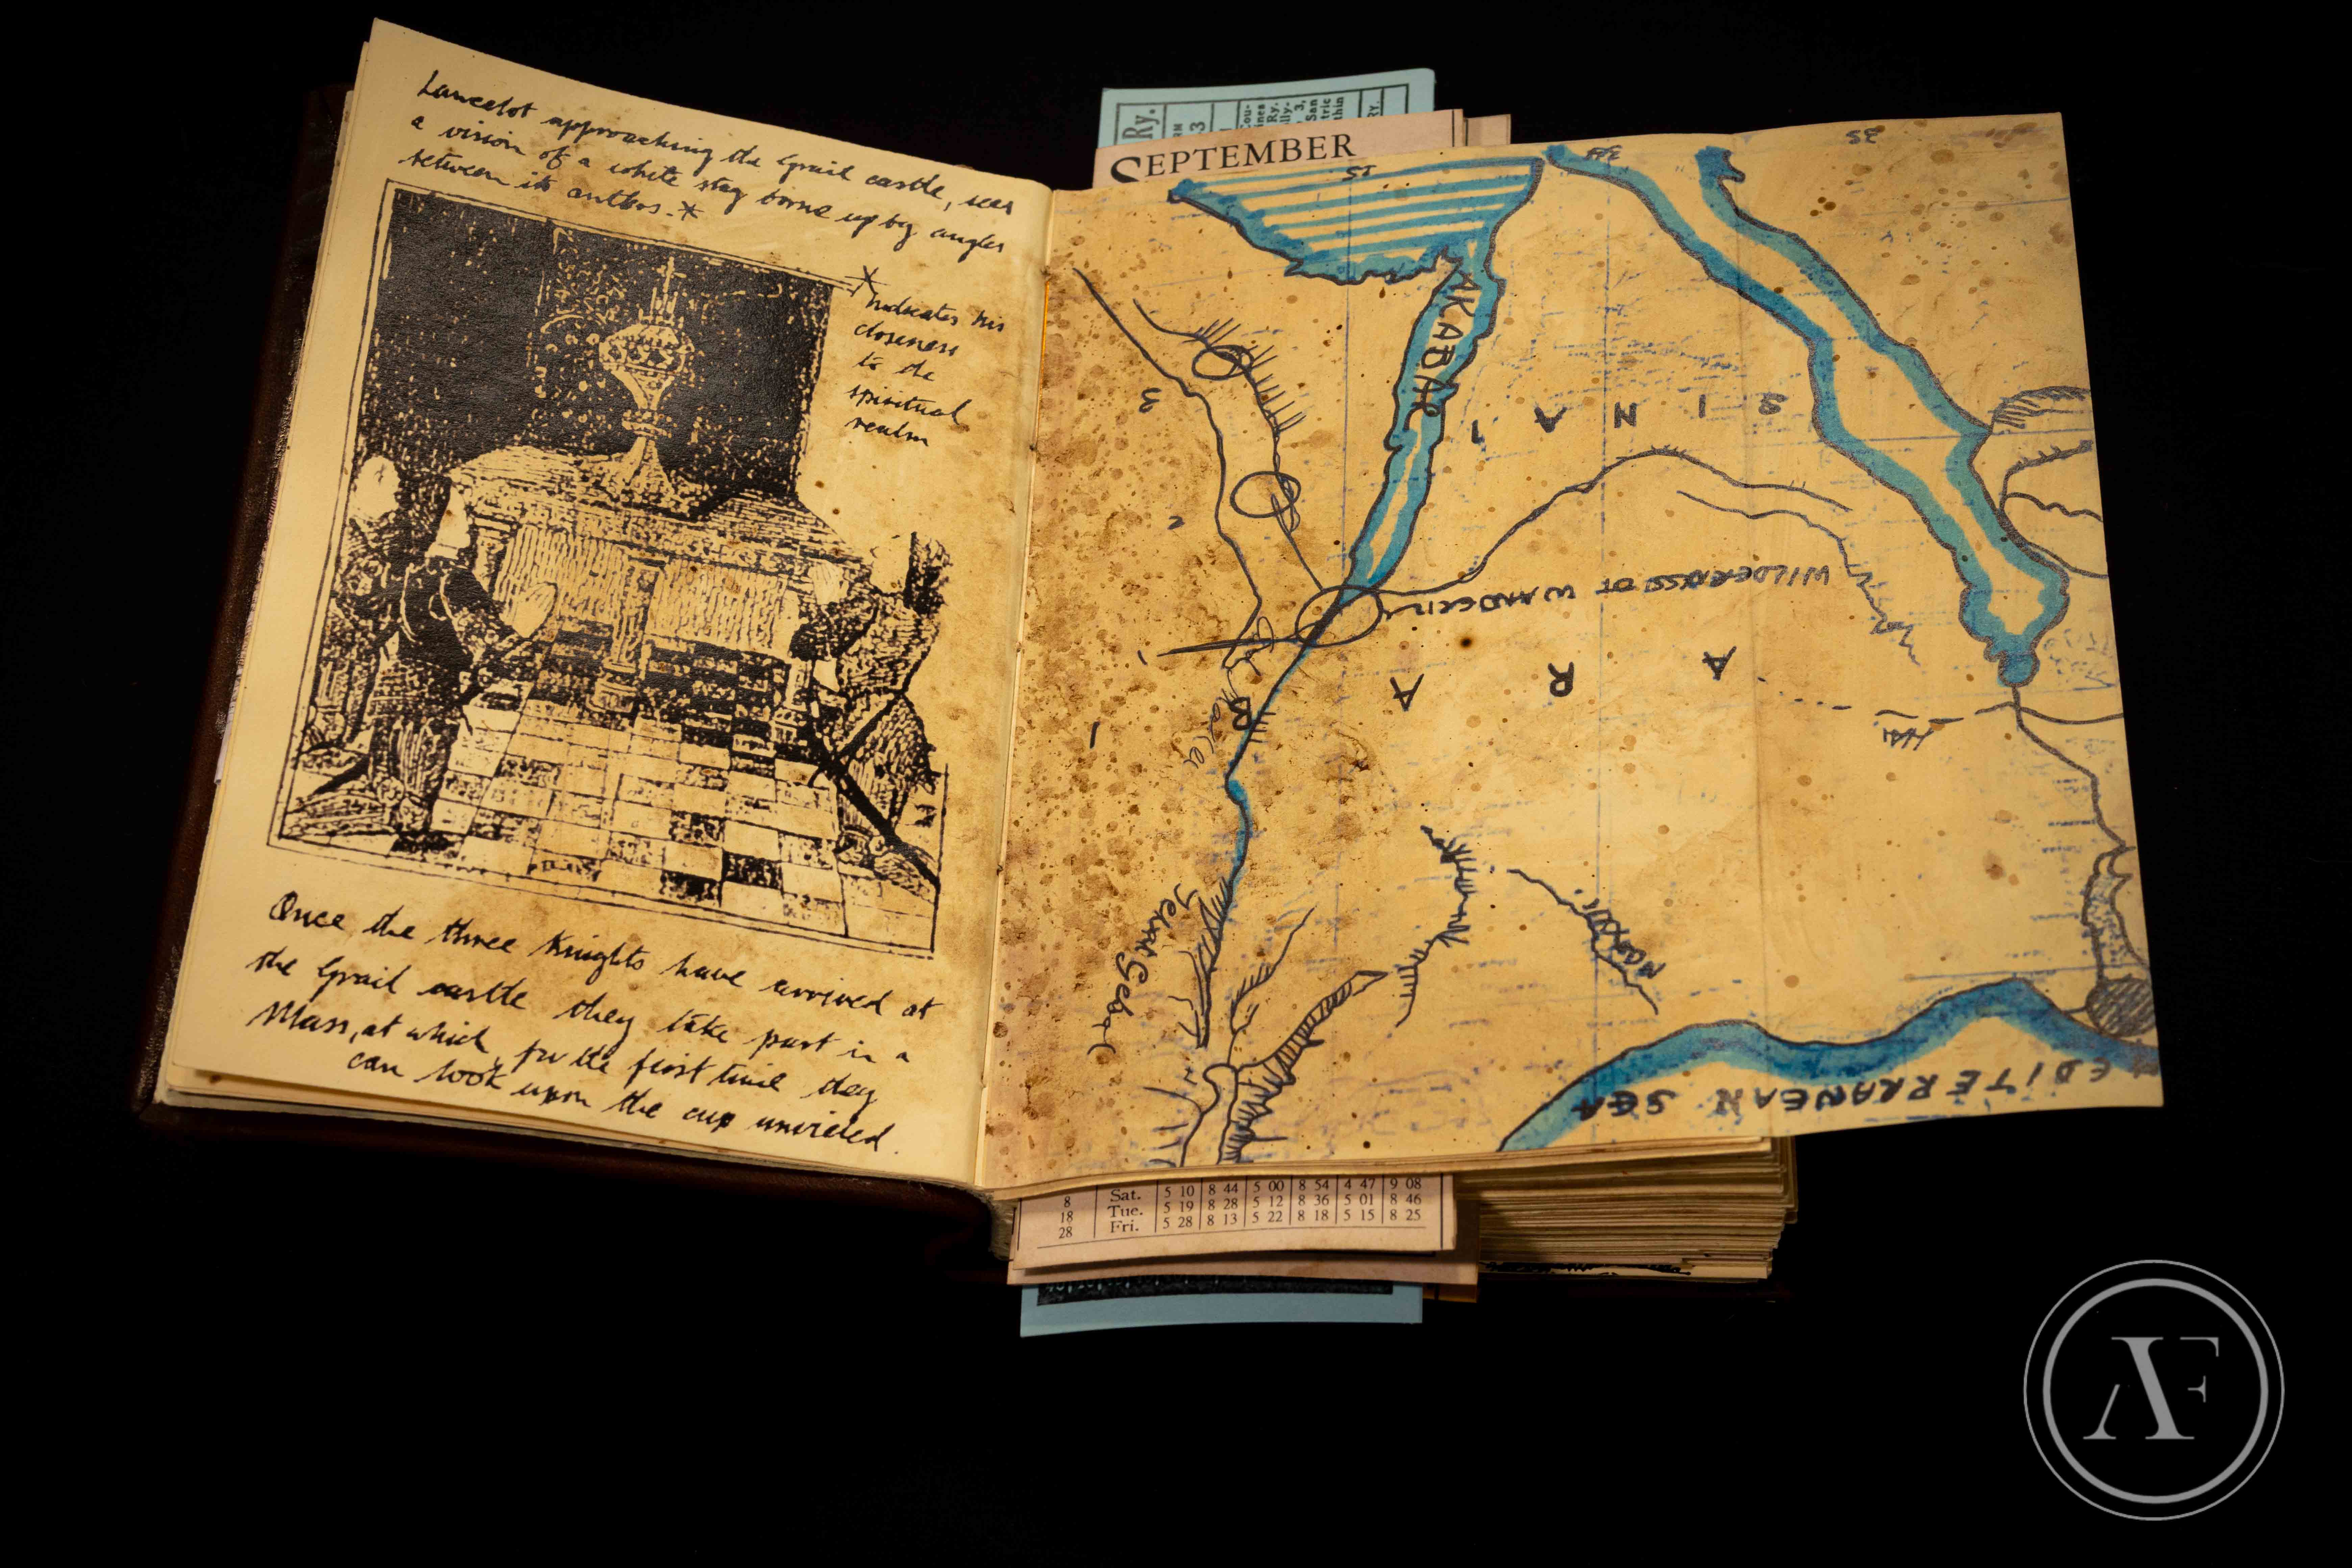 Lancelot approaching the Grail castle, sees
a vision of a white stag borne up by angles
between its antlers.*
*Indicates his
closeness
to the
spiritual
realm
Once the three Knights have arrived at
the Grail castle they take part in a
Mass, at which, for the first time they
can look upon the cup unvieled.
Ry.
3
SEPTEMBER
AKABAH
SINAI
3
2
1
WILDERNESS OF
ARA
B
Jebal Gebal
EDITERRANEAN SEA
8 Sat. 5 10 8 44 5 00 8 54 4 47 9 08
18 Tue. 5 19 8 28 5 12 8 36 5 01 8 46
28 Fri. 5 28 8 13 5 22 8 18 5 15 8 25
AF